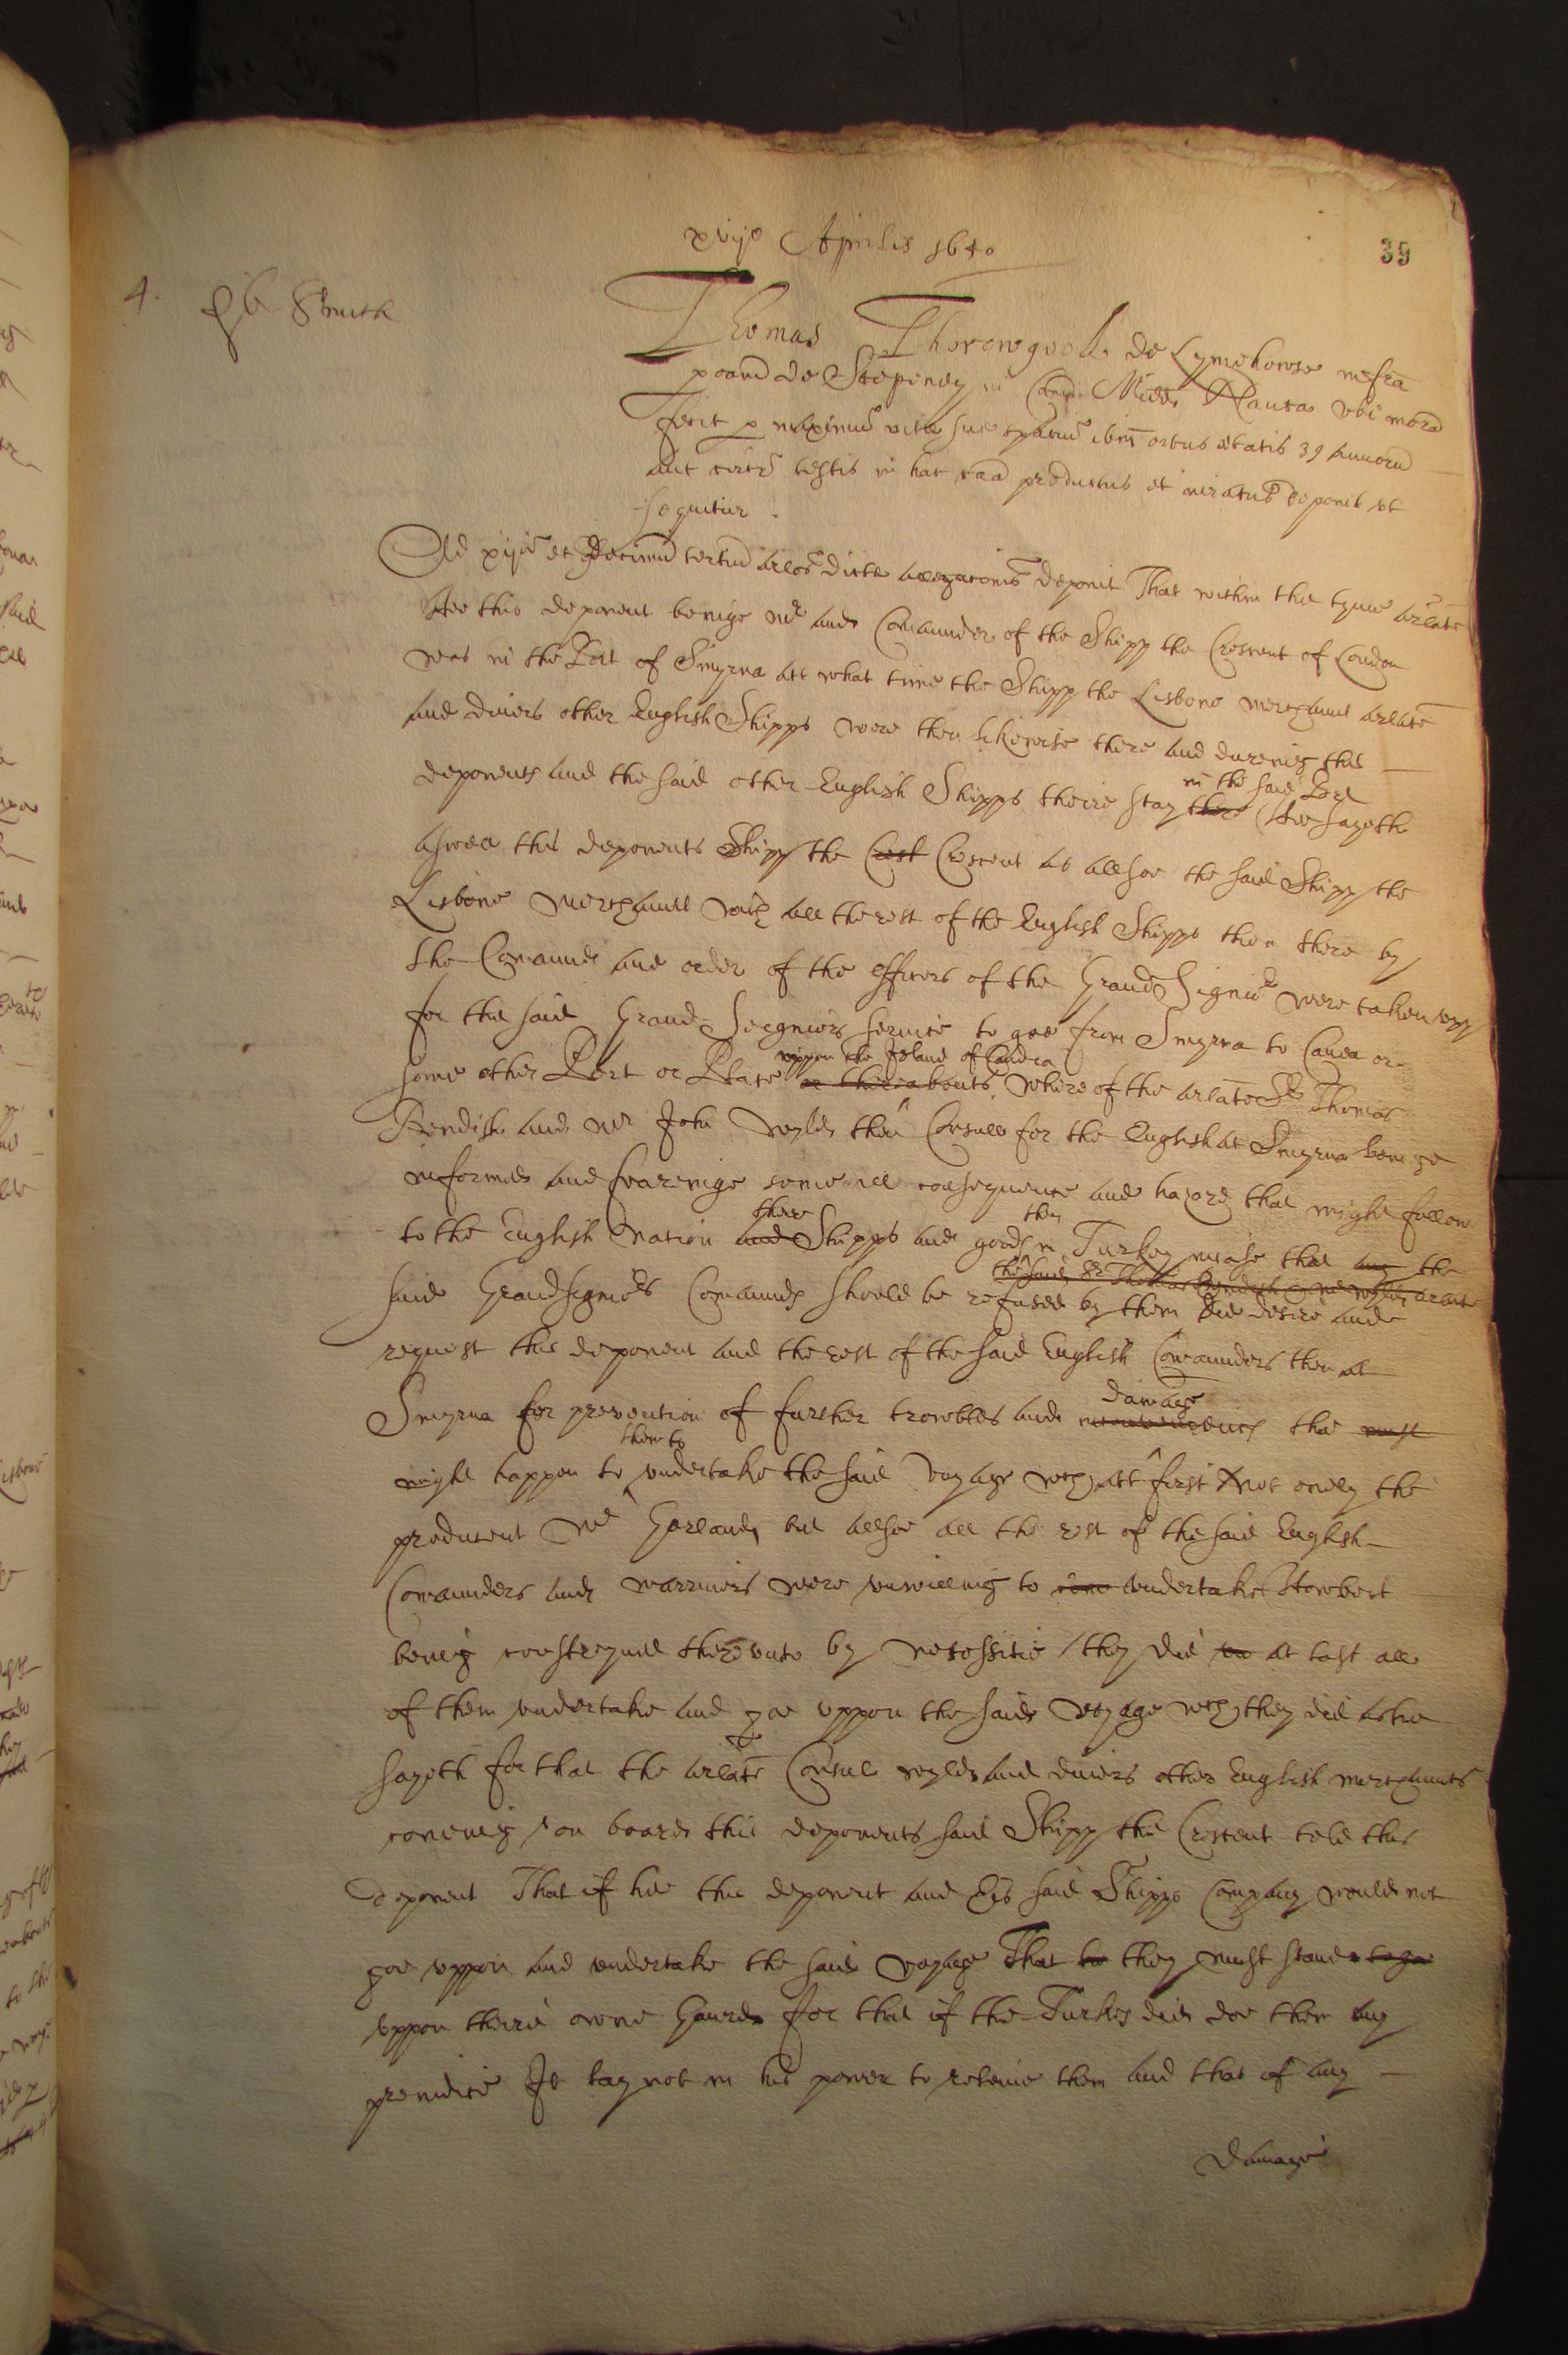 xvijo Aprilis 1650
39
4.
Smith
Thomas Thorowgood de Lymehowse infra
poam de Stepeney in Com Midd Nauta ubi mora
fecit p maximu vitæ suæ spatiu ibm ortus ætatis 39 Annoru
aut circr testis in hac caa productus et iuratus deponit ut
sequitur.
Ad xiju et decimu tertiu arlos dictæ allegaconis deponit That within the tyme arlate
Hee this deponent beinge mr and Comaunder of the Shipp the Crescent of London
was in the Port of Smyrna att what time the Shipp the Lisbone merchant arlate
and divers other English Shipps were then likewise there and dureing this
deponents and the said other English Shipps theire stay there in the said Port Hee sayeth
aswell this deponents Shipp the Crest Crescent as allsoe the said Shipp the
Lisbone Merchant with all the rest of the English Shipps then there by
the Comaund and order of the officers of the Grand Signior were taken upp
for the said Grand Seigniors service to goe from Smyrna to Canea or
some other Port or Place or thereabouts uppon the Island of Candia whereof the arlate Sr Thomas
Bendish and mr John Wylde then Consull for the English at Smyrna beinge
informed and fearinge some ill consequence and hazard that might follow
to the English Nation and there Shipps and goods then in Turkey incase that any the
said Grand Signiors Comaunds should be refused by them the said Sr Thomas Bendish & mr Wylde arlate did desire and
request this deponent and the rest of the said English Comaunders then at
Smyrna for prevention of further trowbles and damage the must
might happen to them to undertake the said voyage wch att first not onely the
producent Mr Garland but allsoe all the rest of the said English
Comaunders and marriners were unwilling to undertake Howbeit
being constreyned thereunto by necessitie they did at last all
of them undertake and goe uppon the said voyage wch they did as hee
sayeth for that the arlate Consul Wylde and divers other English merchants
comeing on board this deponents said Shipp the Crescent told this
deponent That if hee this deponent and his said Shipps Company would not
goe uppon and undertake the said voyage That to they must stand to ga
uppon theire owne Gaurd for that if the Turkes did doe them any
preiudice It lay not in his power to releive them and that if any
damage